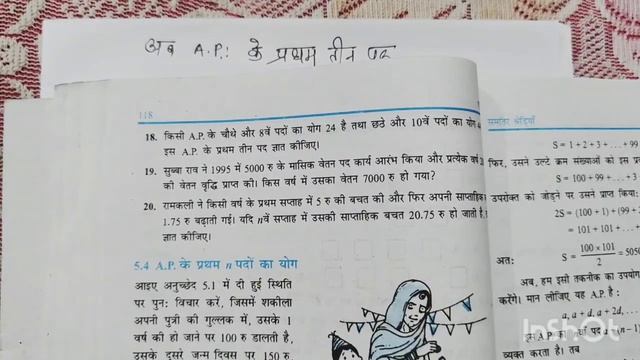 अब A.P.: के प्रथम तीन पद
118
18. किसी A.P. के चौथे और 8वें पदों का योग 24 है तथा छठे और 10वें पदों का योग
इस A.P. के प्रथम तीन पद ज्ञात कीजिए।
19. सुब्बा राव ने 1995 में 5000 रु के मासिक वेतन पद कार्य आरंभ किया और प्रत्येक वर्ष
की वेतन वृद्धि प्राप्त की। किस वर्ष में उसका वेतन 7000 रु हो गया?
20. रामकली ने किसी वर्ष के प्रथम सप्ताह में 5 रु की बचत की और फिर अपनी साप्ताहिक
1.75 रु बढ़ाती गई। यदि n वें सप्ताह में उसकी साप्ताहिक बचत 20.75 रु हो जाती है,
ज्ञात कीजिए।
5.4 A.P. के प्रथम n पदों का योग
आइए अनुच्छेद 5.1 में दी हुई स्थिति
पर पुन: विचार करें, जिसमें शकीला
अपनी पुत्री की गुल्लक में, उसके 1
वर्ष की हो जाने पर 100 रु डालती है,
उसके दूसरे जन्म दिवस पर 150 रु
समांतर श्रेढ़ियाँ
S = 1 + 2 + 3 + . . . + 99
फिर, उसने उल्टे क्रम संख्याओं को इस प्र
S = 100 + 99 + . . . + 3
उपरोक्त को जोड़ने पर उसने प्राप्त किया:
2S = (100 + 1) + (99 +
= 101 + 101 + . . . +
अत: S = 100 × 101 / 2 = 5050
अब, हम इसी तकनीक का उपयोग
करेंगे। मान लीजिए यह A.P. है :
a, a + d, a + 2d, . . .
इस A.P. का nवाँ पद a + (n – 1)
व्यक्त करता है। तब
InShOt